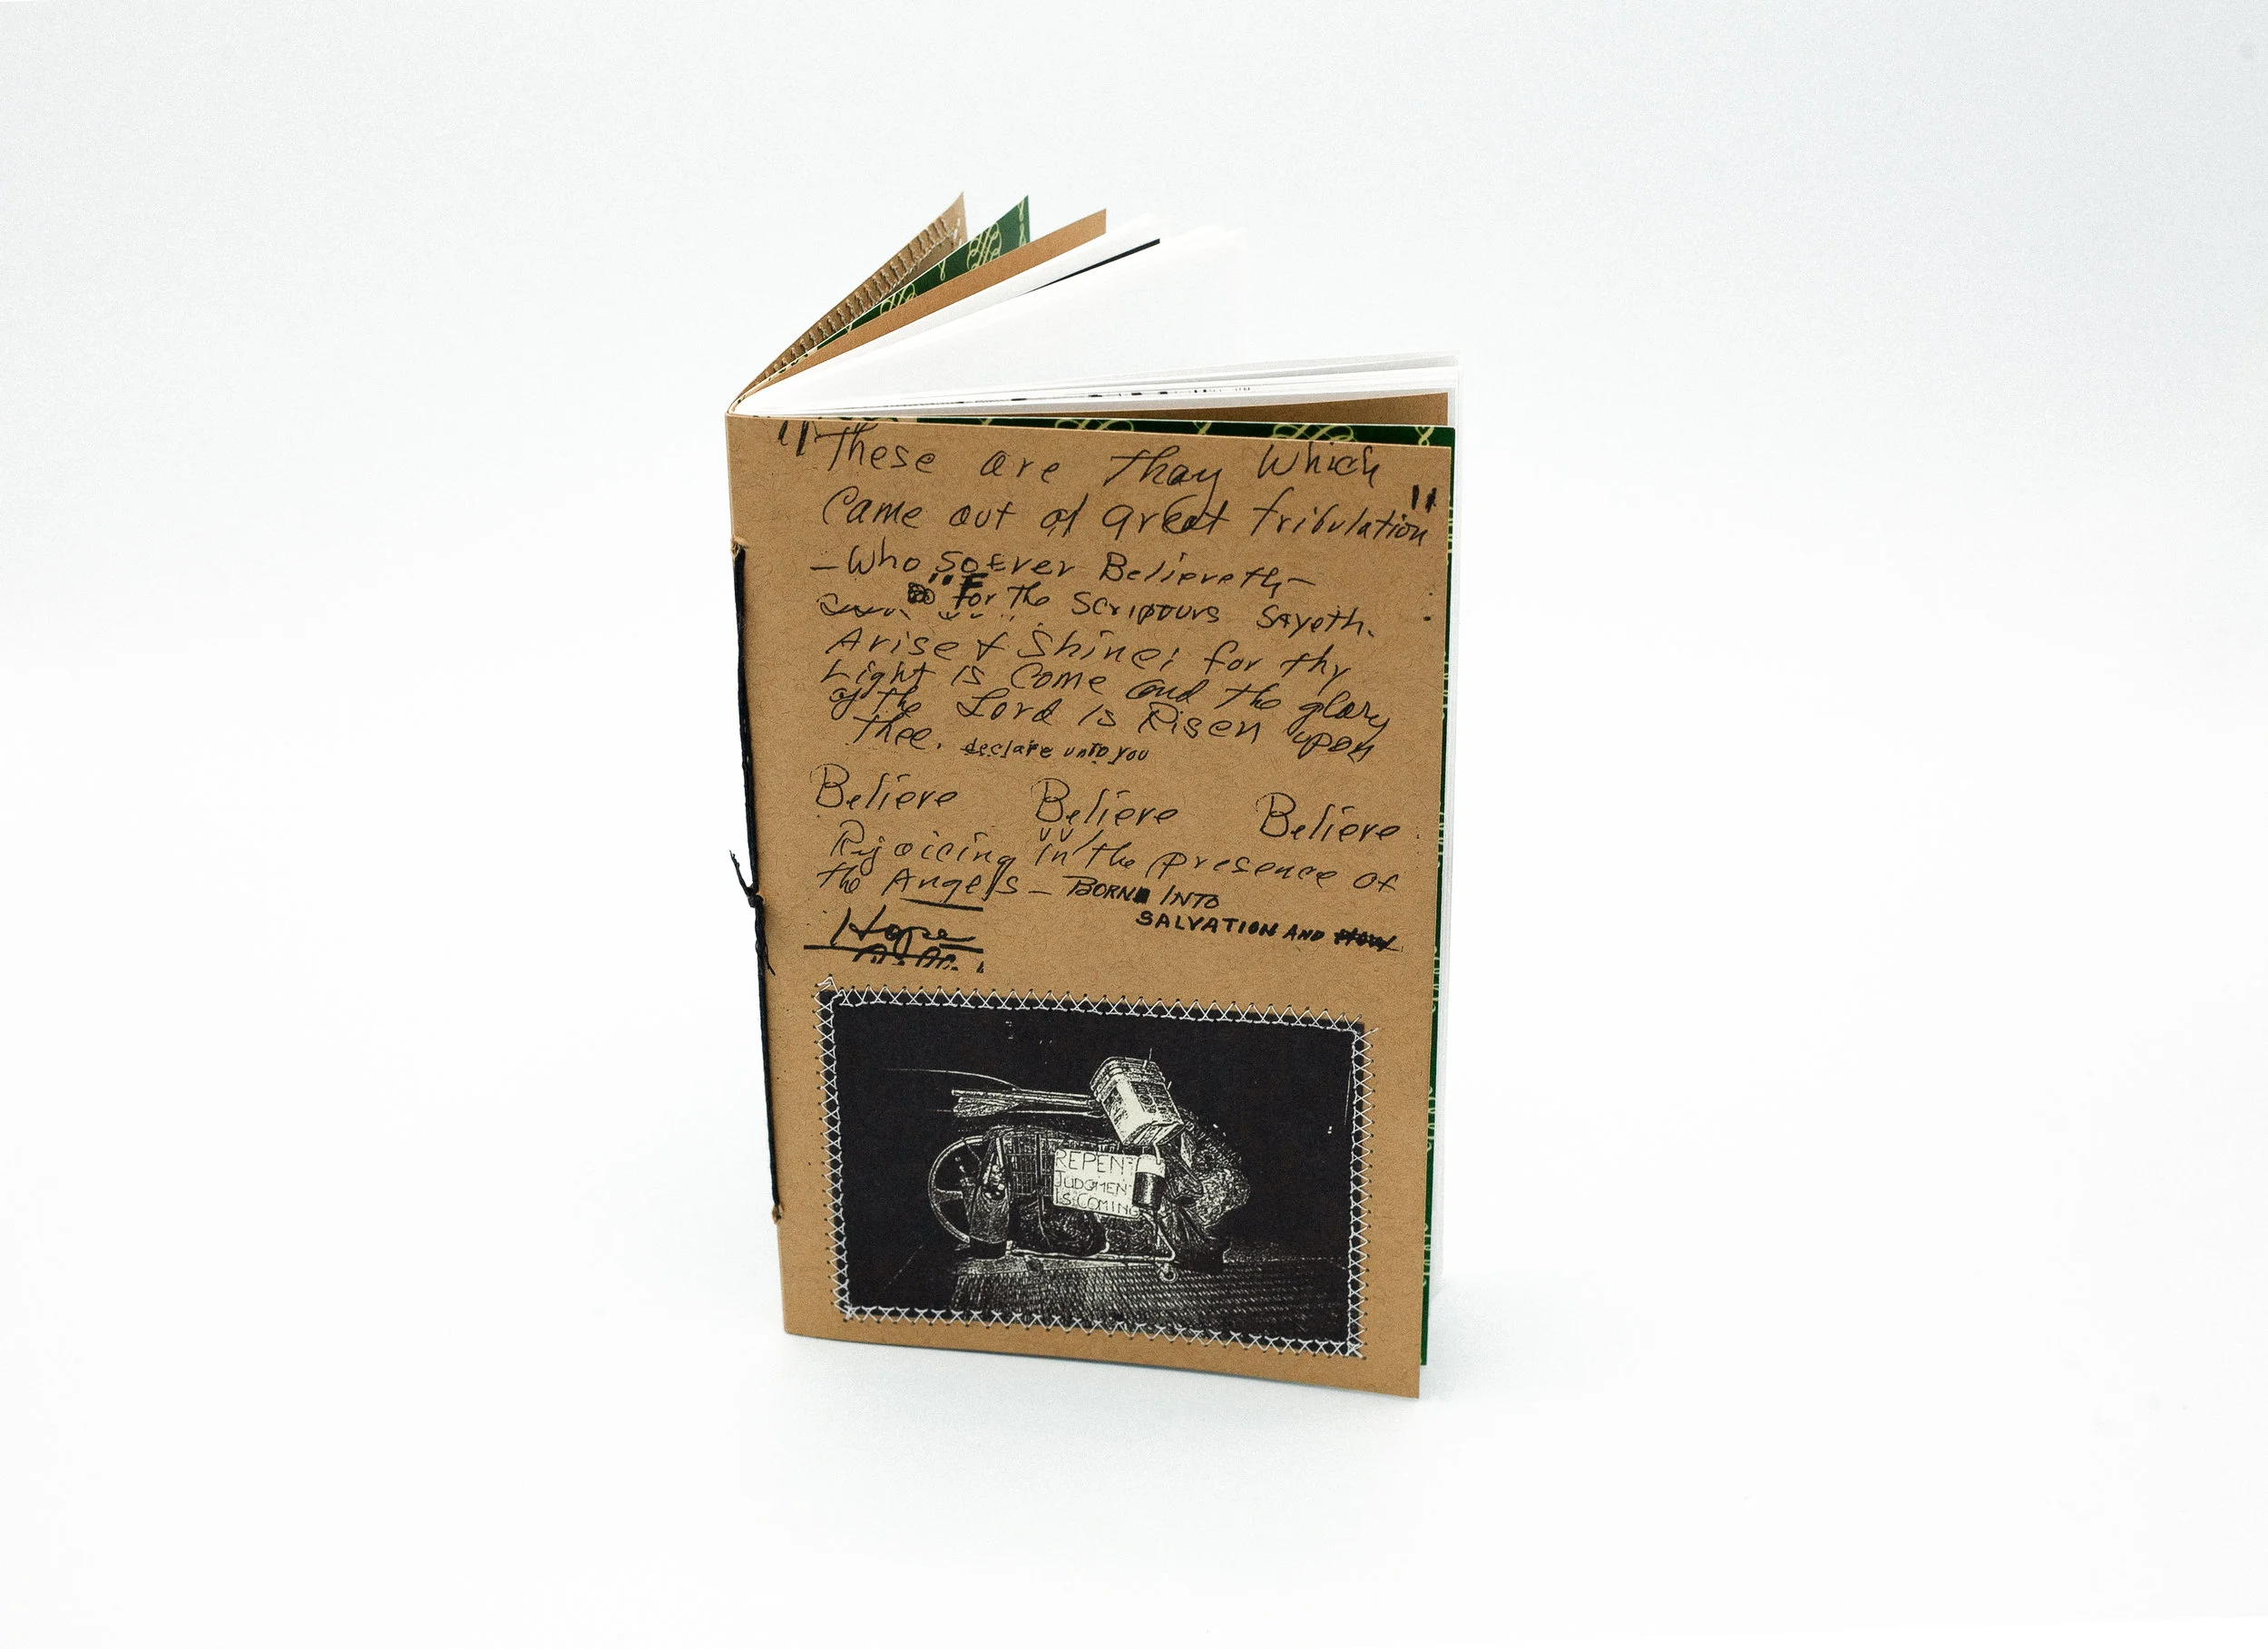 "These are thay which
Came out of great tribulation"
– Who SoEver Believeth –
"For The Scriptours Sayeth.
Arise & Shine; for thy
Light is Come and the glory
of the Lord is Risen upon
thee. declare unto you
Believe Believe Believe
Rejoicing in the presence of
the Angels – BORN INTO
SALVATION AND HOW
Hope
REPENT
JUDGMENT
IS COMING